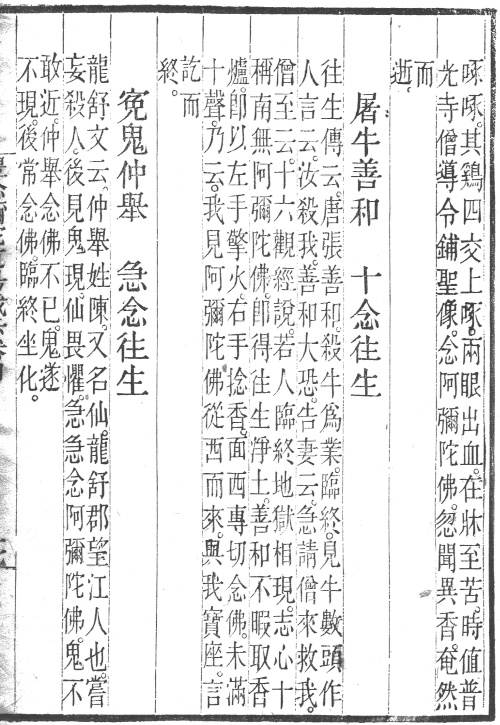 啄啄。其鷄四交上啄。兩眼出血。在牀至苦。時值普
光寺僧導令鋪聖像。念阿彌陀佛。忽聞異香。奄然
而
逝。
屠牛善和　十念往生
往生傳云。唐張善和。殺牛爲業。臨終。見牛數頭作
人言云。汝殺我。善和大恐。告妻云。急請僧來救我。
僧至云。十六觀經說。若人臨終地獄相現。志心十
稱南無阿彌陀佛。卽得往生淨土。善和不暇取香
爐。卽以左手擎火。右手捻香。面西專切念佛。未滿
十聲。乃云。我見阿彌陀佛從西而來。與我寶座。言
訖而
終。
冤鬼仲舉　急念往生
龍舒文云。仲舉姓陳。又名仙。龍舒郡望江人也。嘗
妄殺人。後見鬼現。仙畏懼。急急念阿彌陀佛。鬼不
敢近。仲舉念佛不已。鬼遂
不現。後常念佛。臨終坐化。